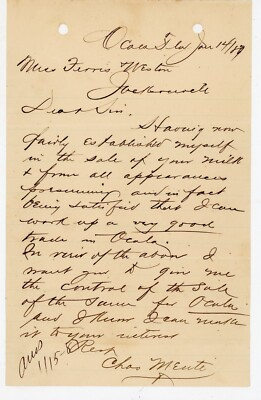 Ocala Fla Jan 14/19
Mess Ferris & Weston
Jacksonville
Dear Sir.
Having now
fairly established myself
in the sale of your milk
& from all appearances
promising and in fact
being satisfied that I can
work up a very good
trade in Ocala.
In view of the above I
want you to give me
the control of the sale
of the same for Ocala
and I know I can make
it to your interest
Resp
Chas
ans
1/15